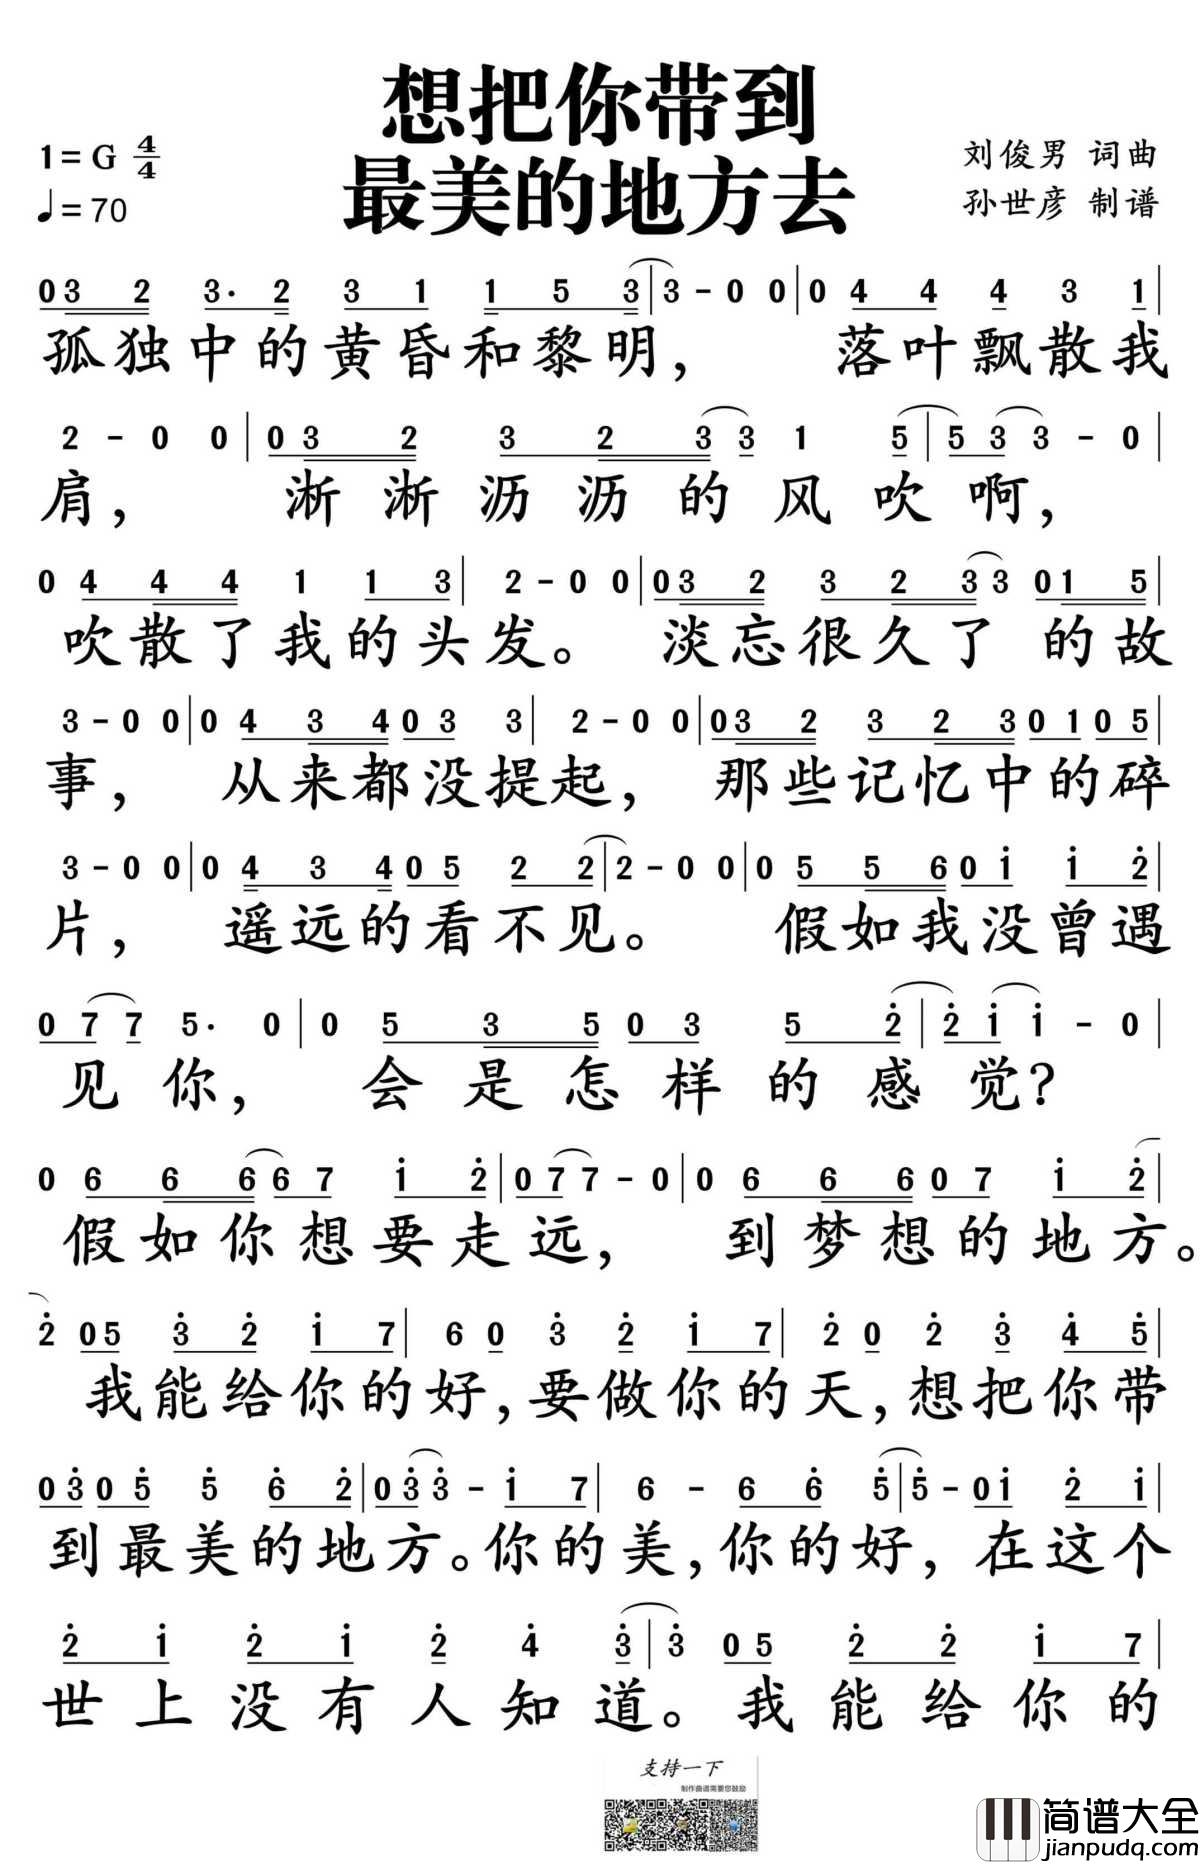 想把你带到
最美的地方去
1=G 4/4
♩=70
刘俊男 词曲
孙世彦 制谱
03 2 3· 2 3 1 1 5 3|3-0 0|0 4 4 4 3 1|
孤独中的黄昏和黎明， 落叶飘散我
2 - 0 0|03 2 3 2 33 1 5|5 3 3 - 0|
肩， 淅淅沥沥的风吹啊，
0 4 4 4 1 1 3|2-0 0|03 2 3 2 33 01 5|
吹散了我的头发。 淡忘很久了 的故
3-0 0|0 4 3 4 0 3 3|2-0 0|03 2 3 2 3 0 1 0 5|
事， 从来都没提起， 那些记忆中的碎
3-0 0|0 4 3 4 0 5 2 2|2-0 0|0 5 5 6 0 i i 2̇|
片， 遥远的看不见。 假如我没曾遇
0 7 7 5· 0|0 5 3 5 0 3 5 2̇|2̇ i i - 0|
见你， 会是怎样的感觉？
0 6 6 6 6 7 i 2̇|0 7 7 - 0|0 6 6 6 0 7 i 2̇|
假如你想要走远， 到梦想的地方。
2̇ 05 3̇ 2̇ i 7|6 0 3̇ 2̇ i 7|2̇ 0 2̇ 3̇ 4̇ 5̇|
我能给你的好，要做你的天，想把你带
03̇ 0 5̇ 5̇ 6̇ 2̇|0 3̇ 3̇ - i 7|6 - 6 6̇ 5̇|5̇ - 0i 2̇ i|
到最美的地方。你的美，你的好，在这个
2̇ i 2̇ i 2̇ 4̇ 3̇|3̇ 0 5 2̇ 2̇ i 7|
世上没有人知道。我能给你的
支持一下
制作曲谱需要您鼓励
简谱大全
jianpudq.com